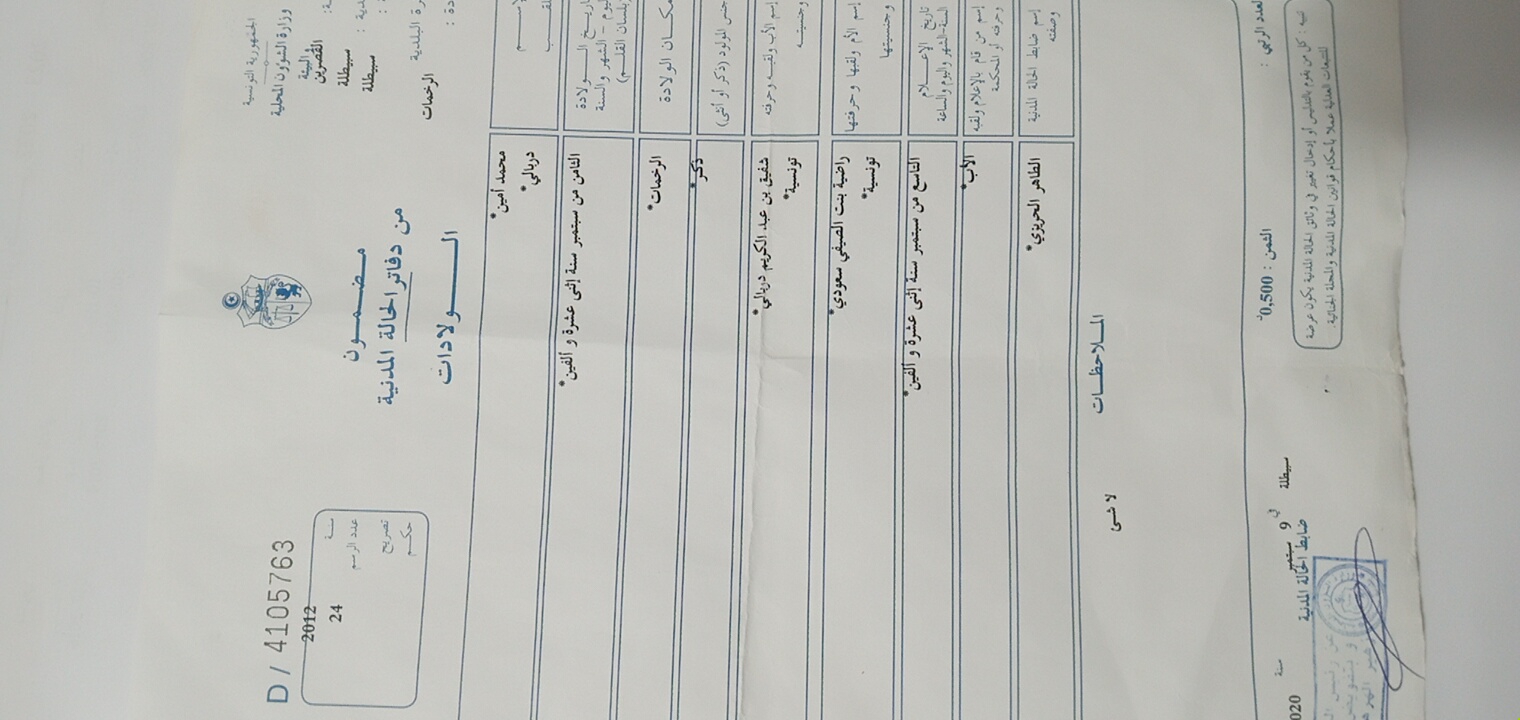 الجمهورية التونسية
وزارة الشؤون المحلية
والبيئة
القصرين
سبيطلة
سبيطلة
الرخمات
مضمون
من دفاتر الحالة المدنية
الولادات
D / 4105763
سنة 2012
عدد الرسم 24
تصريح
حكم
محمد أمين*
دربالي*
تاريخ الولادة
اليوم - الشهر والسنة
(بلسان القلم)
الثامن من سبتمبر سنة إثنى عشرة و ألفين*
مكان الولادة
الرخمات*
جنس المولود (ذكر أو أنثى)
ذكر*
إسم الأب ولقبه وحرفته
وجنسيته
شفيق بن عبد الكريم دربالي*
تونسية*
إسم الأم ولقبها وحرفتها
وجنسيتها
راضية بنت الصيفي سعودي*
تونسية*
تاريخ الإعلام
السنة-الشهر واليوم والساعة
التاسع من سبتمبر سنة إثنى عشرة و ألفين*
إسم من قام بالإعلام ولقبه
وحرفته أو المحكمة
الأب*
إسم ضابط الحالة المدنية
وصفته
الطاهر الحريزي*
الملاحظات
لا شئ
العدد الرتبي :
الثمن : 0,500د
سبيطلة في 9 سبتمبر سنة 020
ضابط الحالة المدنية
تنبيه : كل من يقوم بالتدليس أو إدخال تغيير في وثائق الحالة المدنية يكون عرضة
للتتبعات العدلية عملا بأحكام قوانين الحالة المدنية والمجلة الجنائية.